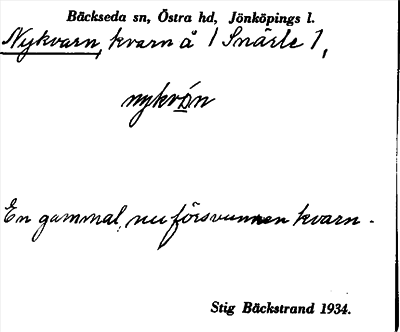 Bäckseda sn, Östra hd, Jönköpings l.
Nykvarn, kvarn å 1 Snärle 1,
nykvån
En gammal, nu försvunnen kvarn.
Stig Bäckstrand 1934.